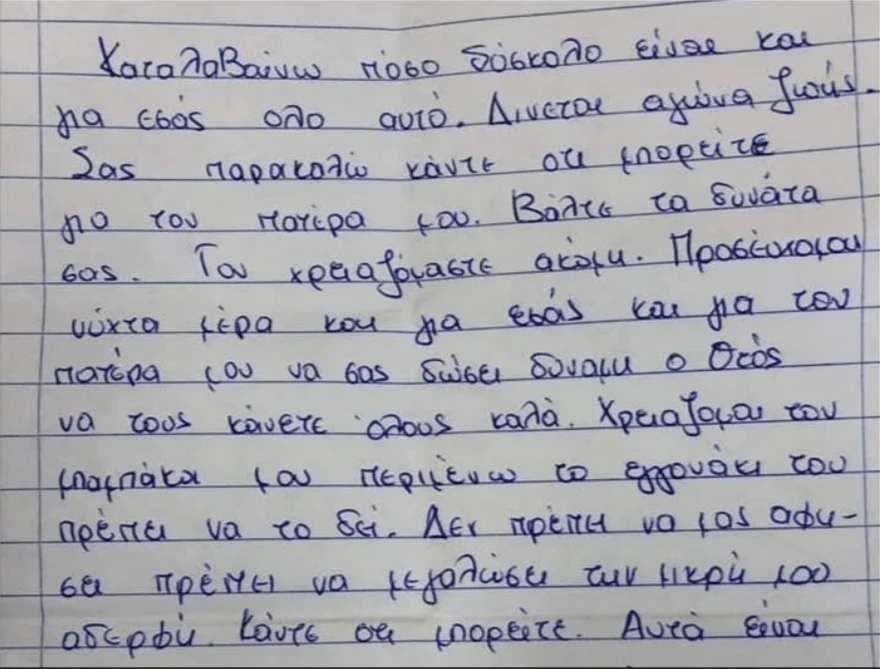 Καταλαβαίνω πόσο δύσκολο είναι και
για εσάς όλο αυτό. Δίνεται αγώνα ζωής.
Σας παρακαλώ κάντε οτι μπορείτε
για τον πατέρα μου. Βάλτε τα δυνάτα
σας. Τον χρειαζόμαστε ακόμη. Προσέυχομαι
νύχτα μέρα και για εσάς και για τον
πατέρα μου να σας δώσει δύναμη ο Θεός
να τους κάνετε όλους καλά. Χρειαζομαι τον
μπαμπάκα μου περιμένω το εγγονάκι του
πρέπει να το δεί. Δεν πρέπει να μας αφή-
σει πρέπει να μεγαλώσει την μικρή μου
αδερφή. Κάντε οτι μπορείτε. Αυτά είναι